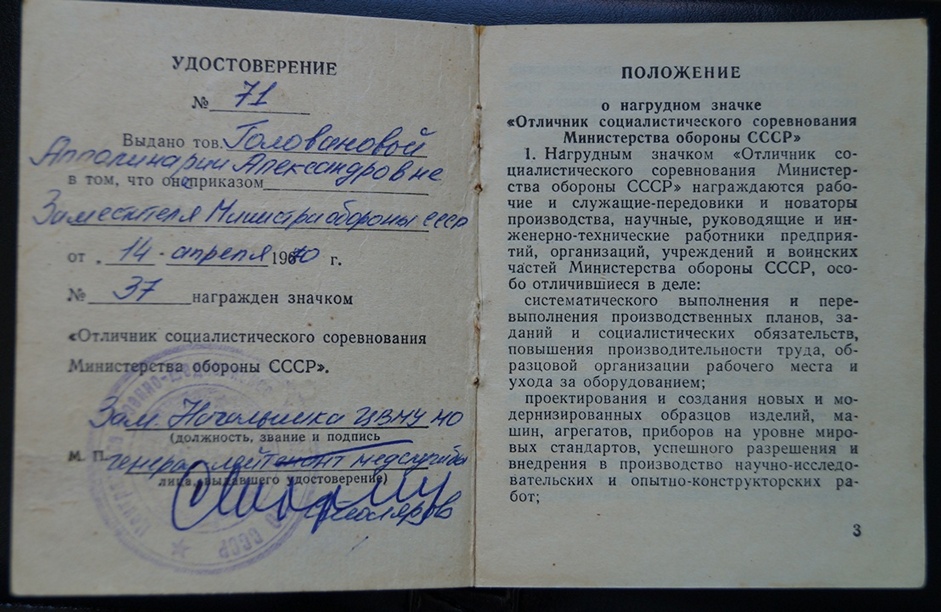 УДОСТОВЕРЕНИЕ
№ 71
Выдано тов. Головановой
Апполинарии Александровне
в том, что она приказом
Заместителя Министра обороны СССР
от „ 14 · апреля 1970 г.
№ 37 награжден значком
«Отличник социалистического соревнования
Министерства обороны СССР».
Зам. Начальника ЦВМУ МО
(должность, звание и подпись
М. П. генерал-лейтенант медслужбы
лица, выдавшего удостоверение)
ПОЛОЖЕНИЕ
о нагрудном значке
«Отличник социалистического соревнования
Министерства обороны СССР»
1. Нагрудным значком «Отличник со-
циалистического соревнования Министер-
ства обороны СССР» награждаются рабо-
чие и служащие-передовики и новаторы
производства, научные, руководящие и ин-
женерно-технические работники предприя-
тий, организаций, учреждений и воинских
частей Министерства обороны СССР, осо-
бо отличившиеся в деле:
систематического выполнения и пере-
выполнения производственных планов, за-
даний и социалистических обязательств,
повышения производительности труда, об-
разцовой организации рабочего места и
ухода за оборудованием;
проектирования и создания новых и мо-
дернизированных образцов изделий, ма-
шин, агрегатов, приборов на уровне миро-
вых стандартов, успешного разрешения и
внедрения в производство научно-исследо-
вательских и опытно-конструкторских ра-
бот;
3